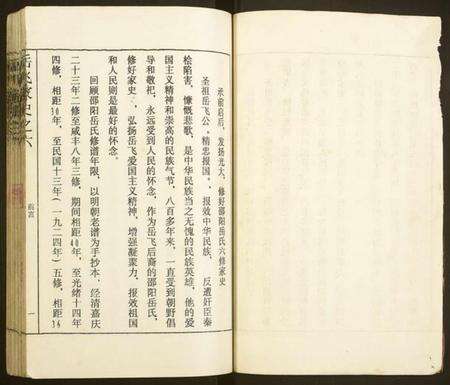 承前启后，发扬光大，修好邵阳岳氏六修家史
圣祖岳飞公，精忠报国，报效中华民族，反遭奸臣秦
桧陷害，慷慨悲歌，是中华民族当之无愧的民族英雄，他的爱
国主义精神和崇高的民族气节，八百多年来，一直受到朝野倡
导和敬祀，永远受到人民的怀念，作为岳飞后裔的邵阳岳氏，
修好家史，弘扬岳飞爱国主义精神，增强凝聚力，报效祖国
和人民则是最好的怀念。
回顾邵阳岳氏修谱年限，以明朝老谱为手抄本，经清嘉庆
二十三年二修至咸丰八年三修，期间相距40年，至光绪十四年
四修，相距30年，至民国十三年(一九二四年)五修，相距36
前言
一